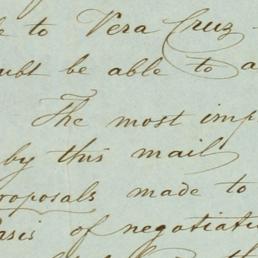 to Vera Cruz
be able to a
The most imp
by this mail
roposals made to
asis of negotiati